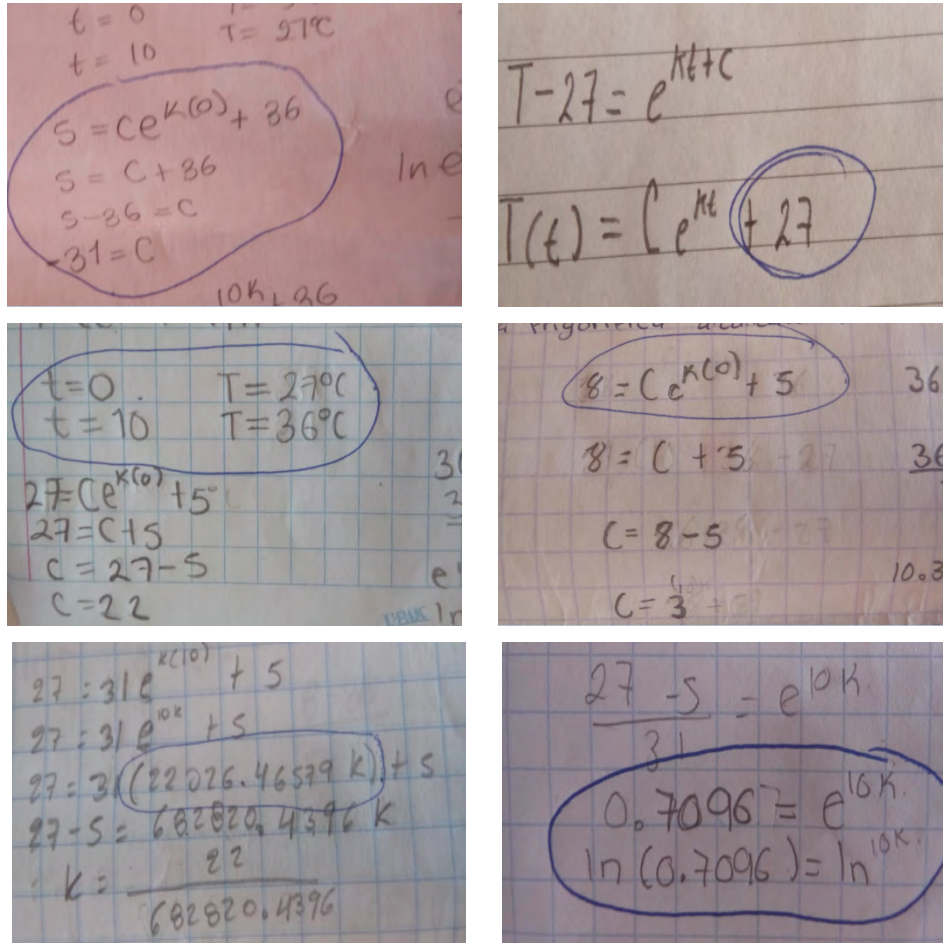 t = 0
t = 10 T = 27°C
5 = Ce^{K(0)} + 36
5 = C + 36
5 - 36 = C
-31 = C
ln e
T - 27 = e^{kt+c}
T(t) = C e^{kt} + 27
t = 0 T = 27°C
t = 10 T = 36°C
27 = Ce^{K(0)} + 5
27 = C + 5
C = 27 - 5
C = 22
8 = Ce^{K(0)} + 5
36
8 = C + 5
C = 8 - 5
10.3
C = 3
27 = 31e^{k(10)} + 5
27 = 31e^{10k} + 5
27 = 31(22026.46579 k) + 5
27 - 5 = 682820.4396 k
k = \frac{22}{682820.4396}
\frac{27 - 5}{31} = e^{10K}.
0.7096 = e^{10K}.
ln(0.7096) = ln^{10K}.